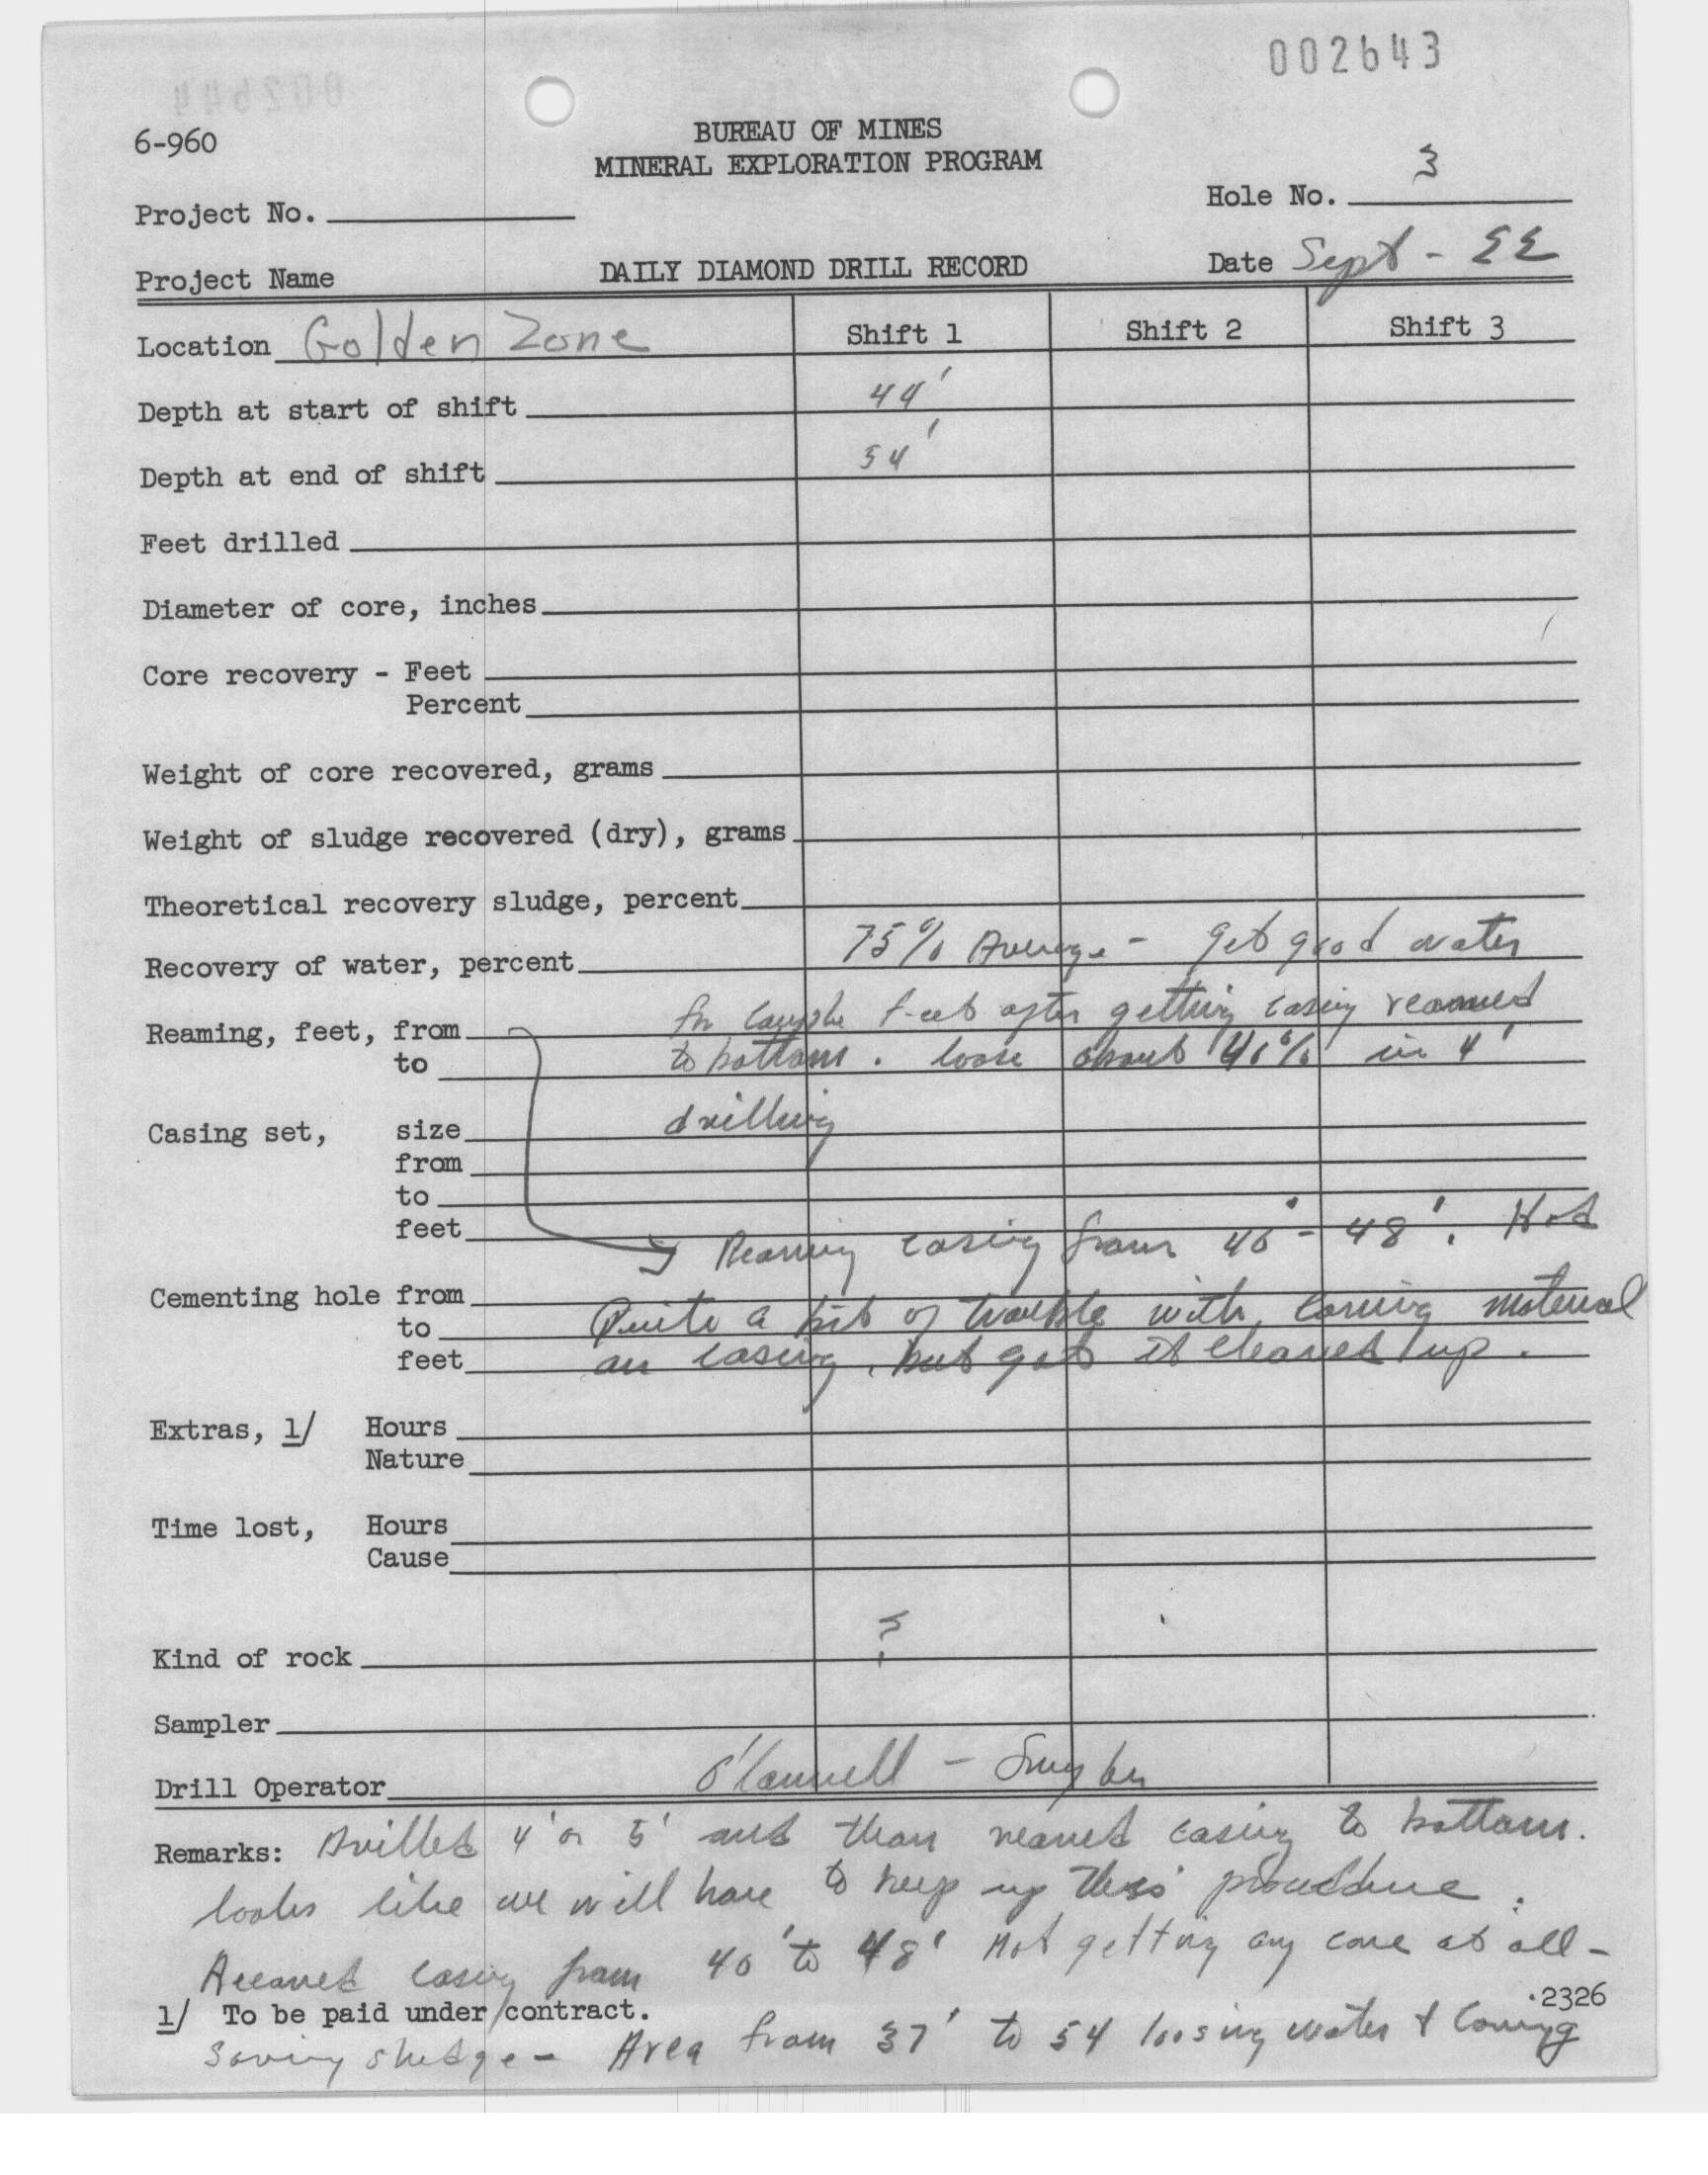 002643
6-960
BUREAU OF MINES
MINERAL EXPLORATION PROGRAM
Hole No. 3
Project No.
Date Sept - 22
Project Name
DAILY DIAMOND DRILL RECORD
Location Golden Zone Shift 1 Shift 2 Shift 3
Depth at start of shift 44'
Depth at end of shift 54'
Feet drilled
Diameter of core, inches
Core recovery - Feet
Percent
Weight of core recovered, grams
Weight of sludge recovered (dry), grams
Theoretical recovery sludge, percent
Recovery of water, percent 75% Average - get good water
Reaming, feet, from for couple feet after getting casing reamed
to to bottom. loose about 40% in 4'
Casing set, size drilling
from
to
feet Reaming casing from 40' - 48'. Had
Cementing hole from
to Quite a bit of trouble with caving material
feet on casing, but got it cleaned up.
Extras, 1/ Hours
Nature
Time lost, Hours
Cause
Kind of rock ?
Sampler
Drill Operator O'Connell -
Remarks: Drilled 4' or 5' and than reamed casing to bottom.
looks like we will have to keep up this procedure.
Reamed casing from 40' to 48' Not getting any core at all -
1/ To be paid under contract. .2326
Saving sludge - Area from 37' to 54 loosing water & Caving